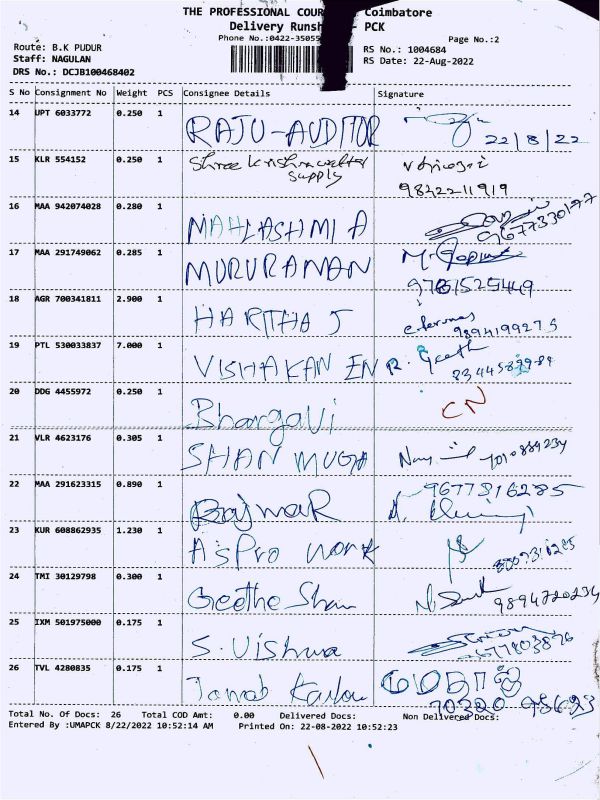 THE PROFESSIONAL COUR Coimbatore
Delivery Runsh - PCK
Phone No.:0422-35055
Page No.:2
Route: B.K PUDUR
Staff: NAGULAN
DRS No.: DCJB100468402
RS No.: 1004684
RS Date: 22-Aug-2022
S No Consignment No Weight PCS Consignee Details Signature
14 UPT 6033772 0.250 1 RAJU-AUDITOR 22/8/22
15 KLR 554152 0.250 1 Shree krishna water
supply
9842211919
16 MAA 942074028 0.280 1 MAHLASHMI A 9677330197
17 MAA 291749062 0.285 1 MURURAMAN
18 AGR 700341811 2.900 1 HARITHA J 9894199275
19 PTL 530033837 7.000 1 VISHAKAN EN R. Geeth
20 DDG 4455972 0.250 1 Bhargavi CN
21 VLR 4623176 0.305 1 SHANMUGA
22 MAA 291623315 0.890 1 Rajmar 9677316285
23 KUR 608862935 1.230 1 AsPro work
24 TMI 30129798 0.300 1 Geethe Shan 9894720234
25 IXM 501975000 0.175 1 S. Vishwa
26 TVL 4280835 0.175 1
70320 95623
Total No. Of Docs: 26 Total COD Amt: 0.00 Delivered Docs: Non Delivered Docs:
Entered By :UMAPCK 8/22/2022 10:52:14 AM Printed On: 22-08-2022 10:52:23